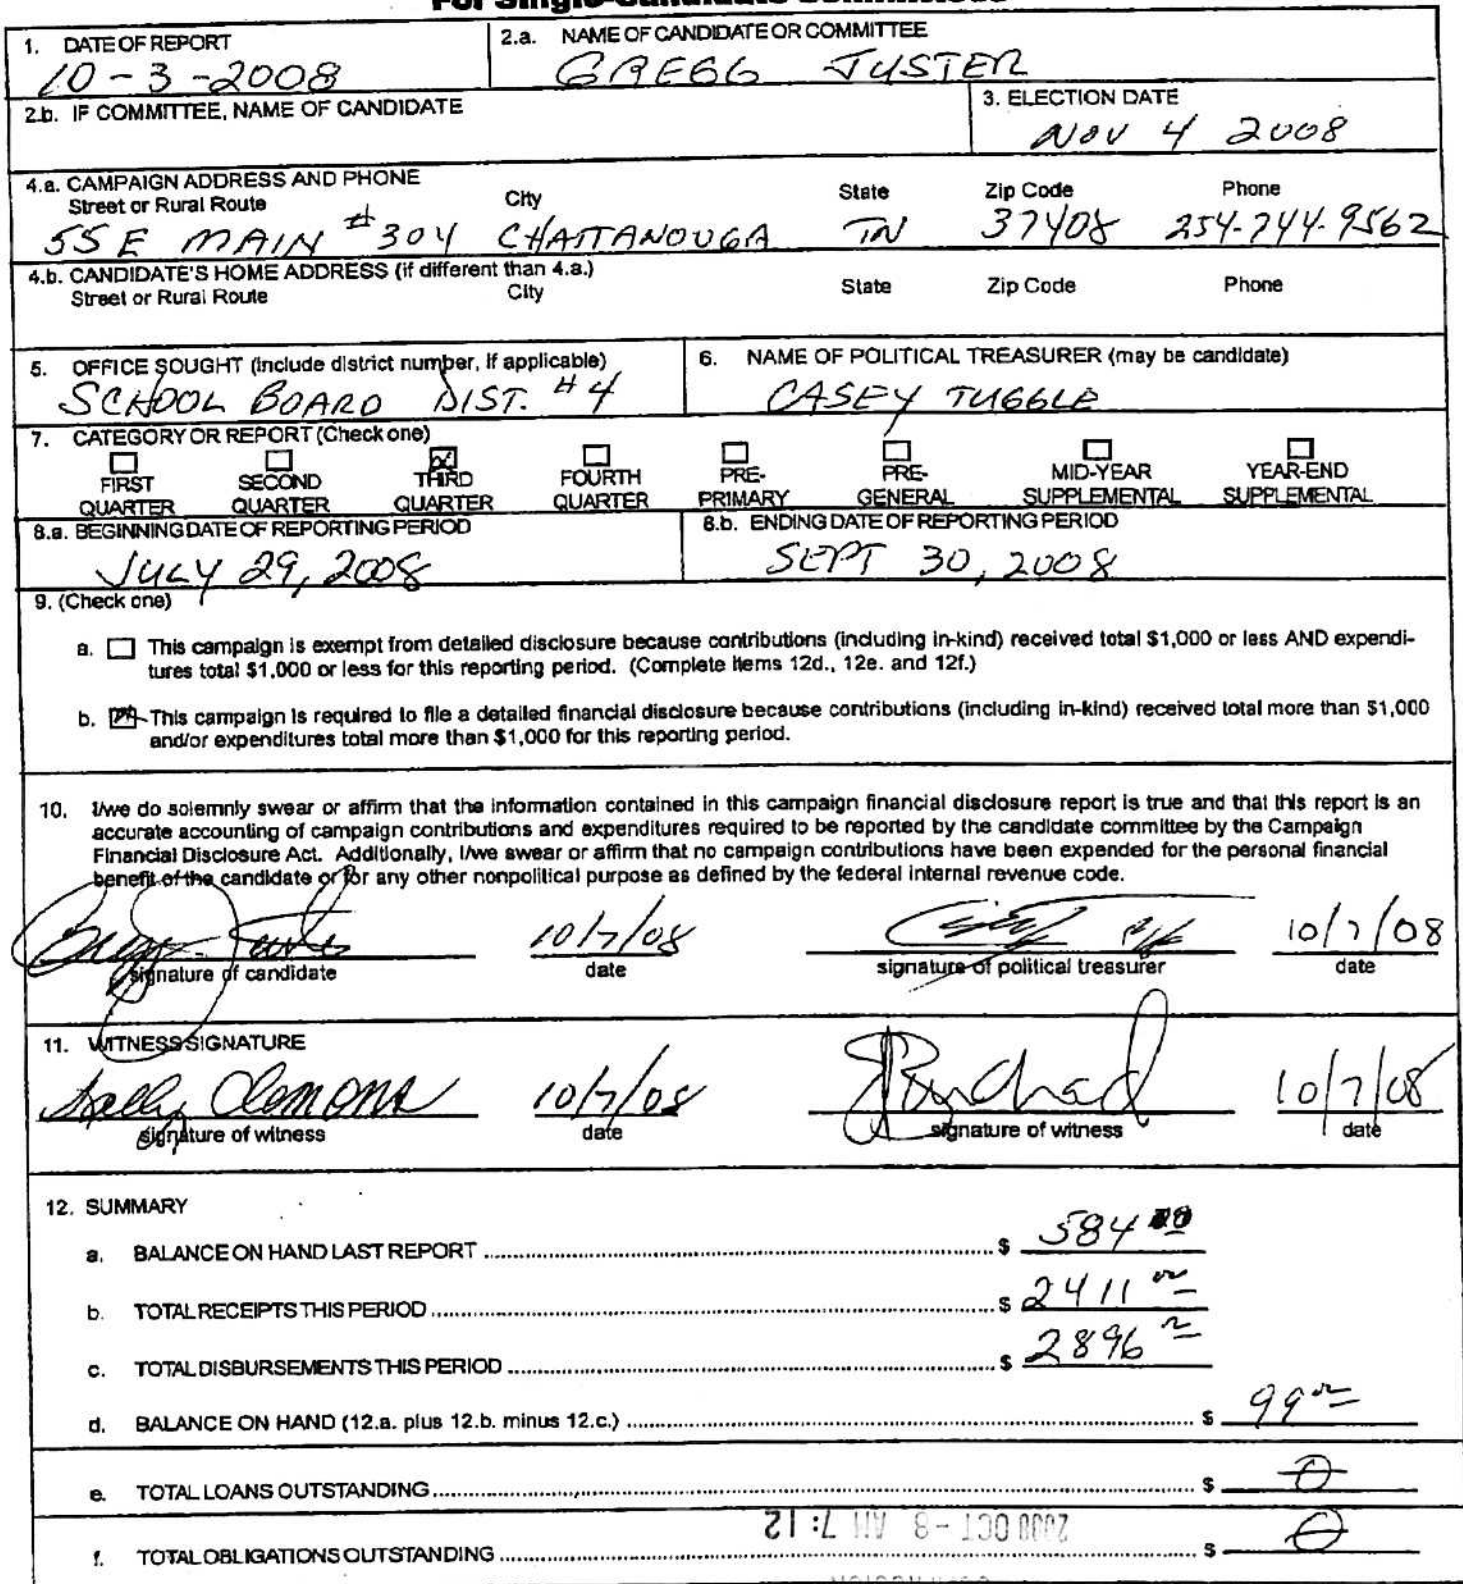 For Single-Candidate Committees
1. DATE OF REPORT
10-3-2008
2.a. NAME OF CANDIDATE OR COMMITTEE
GREGG JUSTER
2.b. IF COMMITTEE, NAME OF CANDIDATE
3. ELECTION DATE
NOV 4 2008
4.a. CAMPAIGN ADDRESS AND PHONE
Street or Rural Route City State Zip Code Phone
55 E MAIN #304 CHATTANOUGA TN 37408 254-744-9562
4.b. CANDIDATE'S HOME ADDRESS (if different than 4.a.)
Street or Rural Route City State Zip Code Phone
5. OFFICE SOUGHT (include district number, if applicable)
SCHOOL BOARD DIST. #4
6. NAME OF POLITICAL TREASURER (may be candidate)
CASEY TUGGLE
7. CATEGORY OR REPORT (Check one)
FIRST QUARTER
SECOND QUARTER
THIRD QUARTER
FOURTH QUARTER
PRE-PRIMARY
PRE-GENERAL
MID-YEAR SUPPLEMENTAL
YEAR-END SUPPLEMENTAL
8.a. BEGINNING DATE OF REPORTING PERIOD
JULY 29, 2008
8.b. ENDING DATE OF REPORTING PERIOD
SEPT 30, 2008
9. (Check one)
a. This campaign is exempt from detailed disclosure because contributions (including in-kind) received total $1,000 or less AND expendi-
tures total $1,000 or less for this reporting period. (Complete items 12d., 12e. and 12f.)
b. This campaign is required to file a detailed financial disclosure because contributions (including in-kind) received total more than $1,000
and/or expenditures total more than $1,000 for this reporting period.
10. I/we do solemnly swear or affirm that the information contained in this campaign financial disclosure report is true and that this report is an
accurate accounting of campaign contributions and expenditures required to be reported by the candidate committee by the Campaign
Financial Disclosure Act. Additionally, I/we swear or affirm that no campaign contributions have been expended for the personal financial
benefit of the candidate or for any other nonpolitical purpose as defined by the federal internal revenue code.
10/7/08 10/7/08
signature of candidate date signature of political treasurer date
11. WITNESS SIGNATURE
Clemons 10/7/08 10/7/08
signature of witness date signature of witness date
12. SUMMARY
a. BALANCE ON HAND LAST REPORT $ 584 00
b. TOTAL RECEIPTS THIS PERIOD $ 2411
c. TOTAL DISBURSEMENTS THIS PERIOD $ 2896
d. BALANCE ON HAND (12.a. plus 12.b. minus 12.c.) $ 99
e. TOTAL LOANS OUTSTANDING $ 0
2008 OCT -8 AM 7:12
f. TOTAL OBLIGATIONS OUTSTANDING $ 0